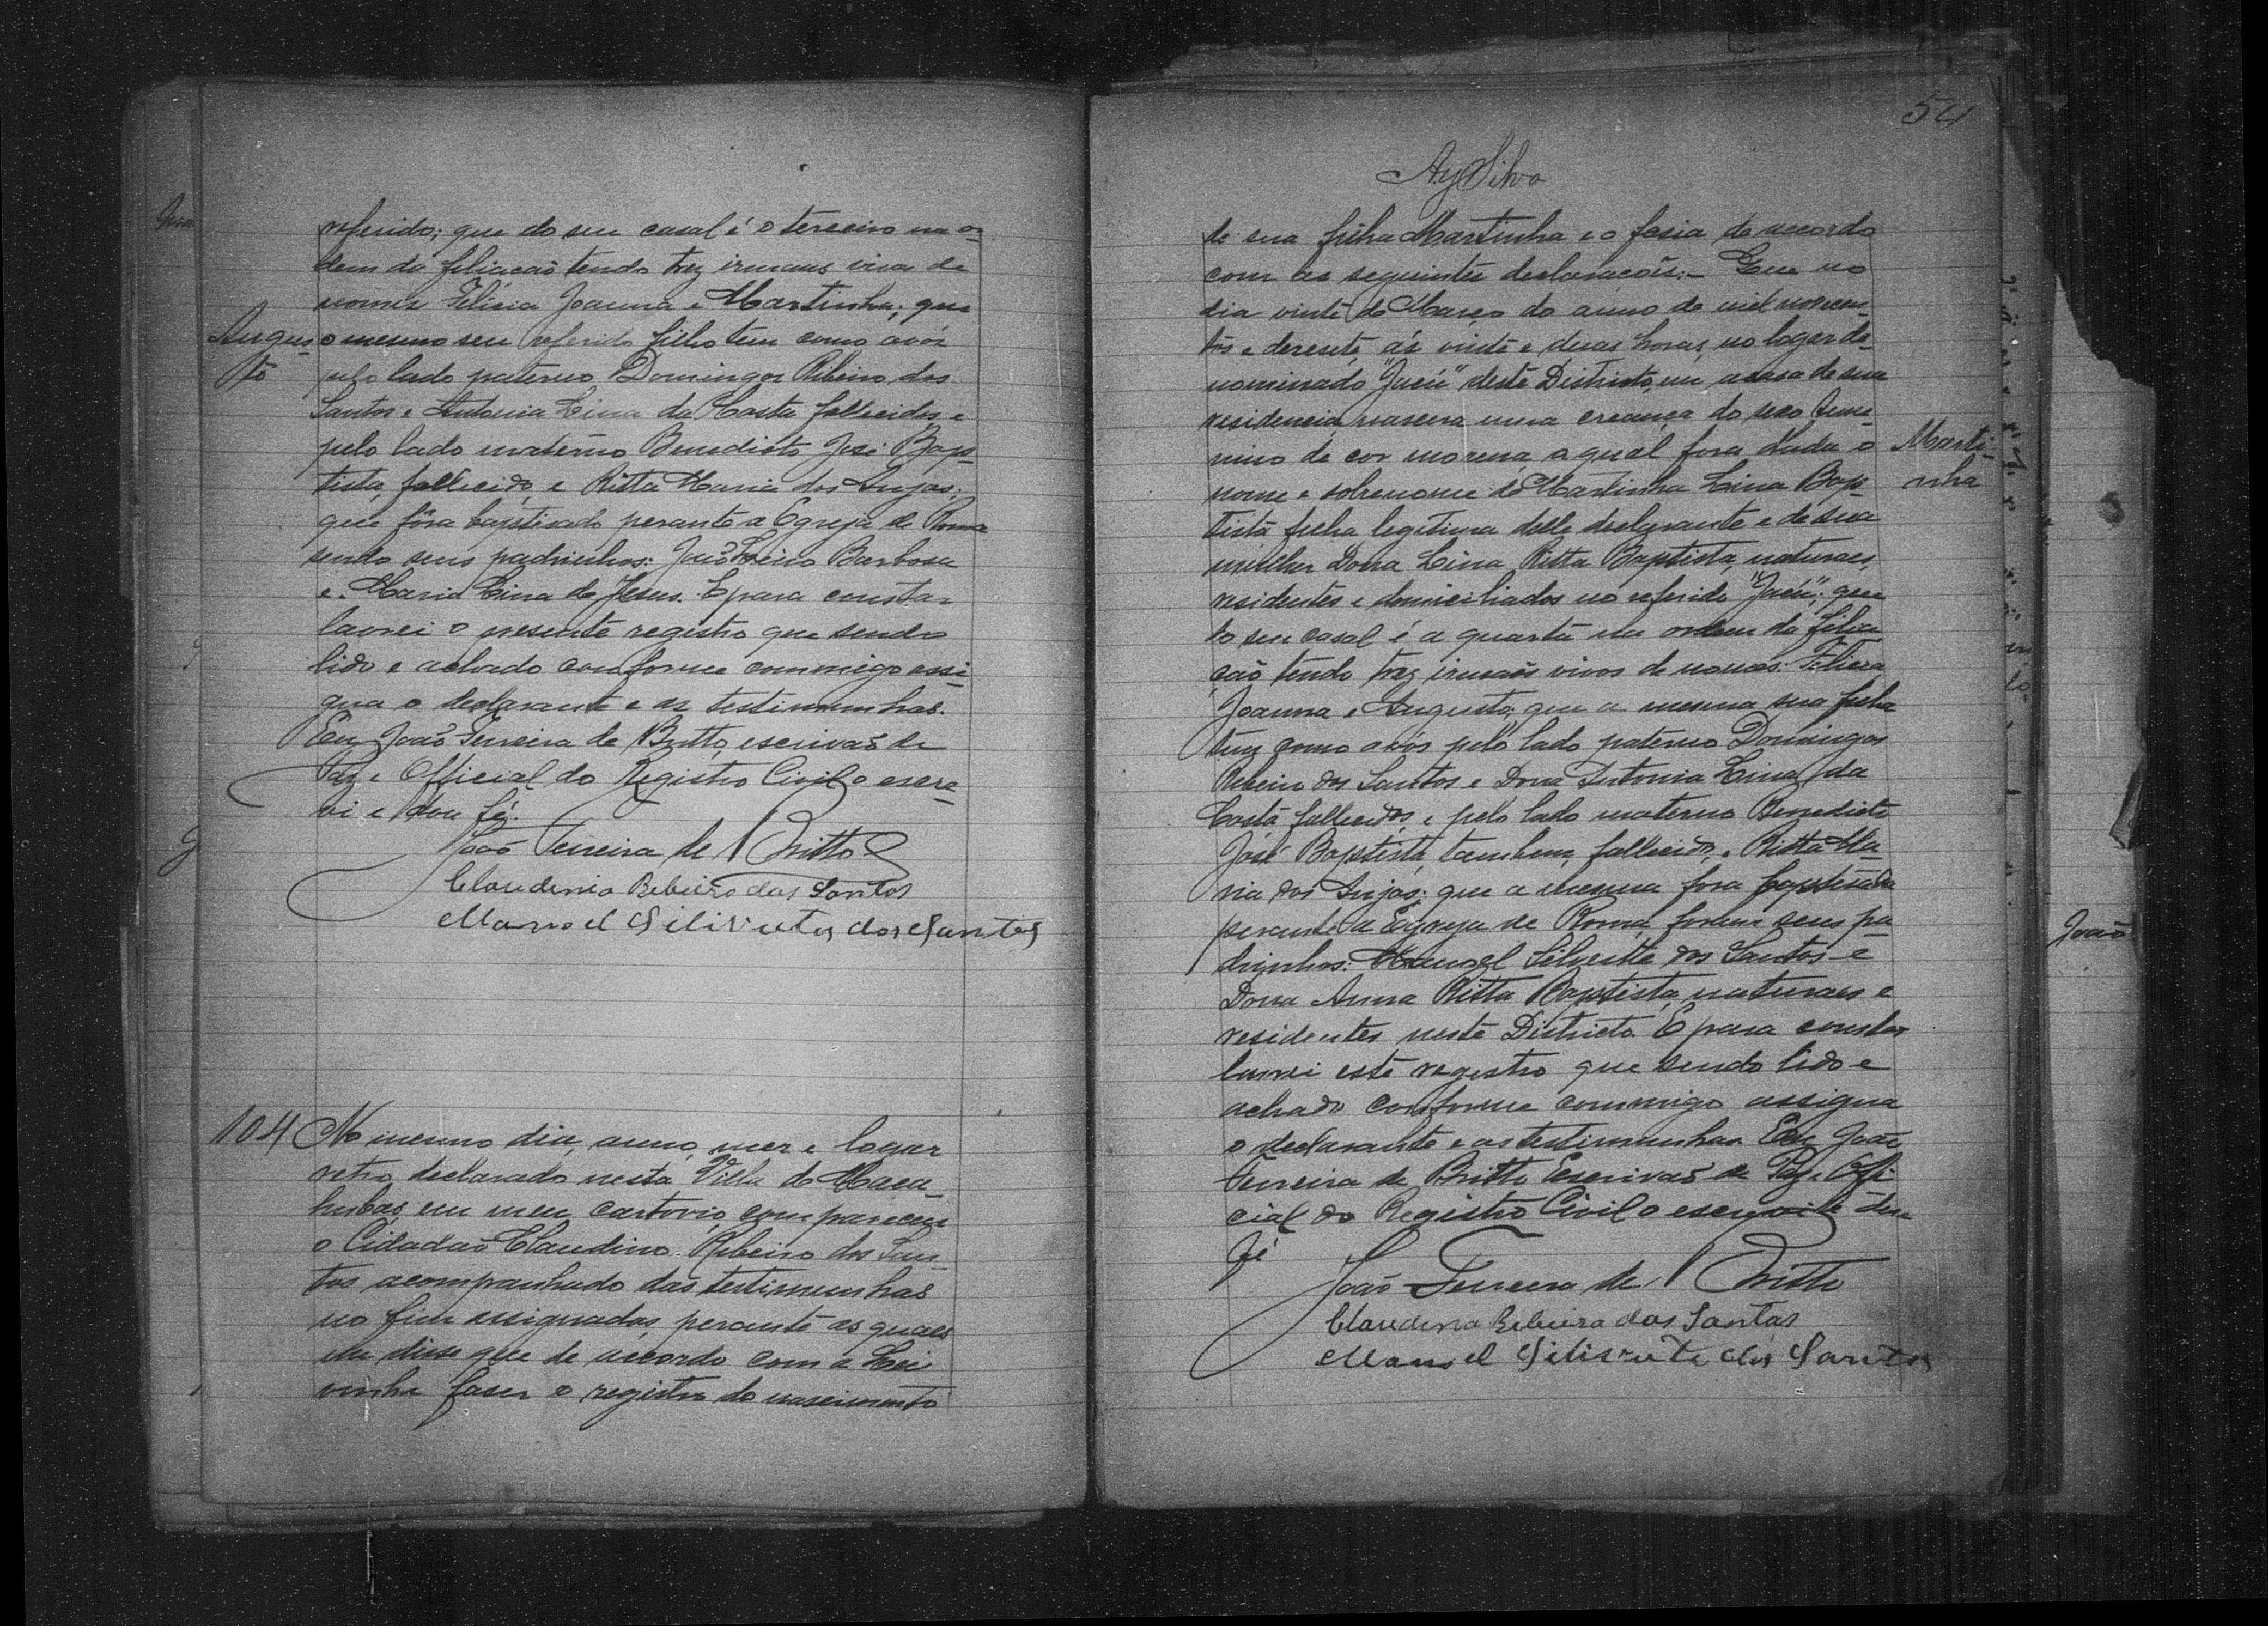 referido; que do seu casal é o terceiro na or-
dem da filiacão tendo trez irmans viva de
nomes Felicia Joanna e Martinha; que
Augus-
to
o mesmo seu referido filho tem como avós
pelo lado paterno Domingos Ribeiro dos
Santos e Antonia Lina da Costa fallecidos e
pelo lado materno Benedicto José Bap-
tista, fallecido, e Ritta Maria dos Anjos;
que fôra baptisado perante a Egreja de Roma
sendo seus padrinhos: João Barbosa
e Maria Lina de Jesus. E para constar
lavrei o presente registro que sendo
lido e achado conforme commigo assi-
gna o declarante e as testimunhas.
Eu, João Ferreira de Britto, escrivão de
Paz e Official do Registro Civil o escre-
vi e dou fé.
João Ferreira de Britto
Claudino Ribeiro dos Santos
Manoel dos Santos
104 No mesmo dia, anno, mez e logar
retro declarado nesta Villa de Maca-
hubas, em meu cartorio, compareceu
o Cidadão Claudino Ribeiro dos San-
tos acompanhado das testimunhas
no fim assignadas, perante as quaes
disse que de accordo com a Lei
vinha faser o registro do nascimento
54
Ay Silva
de sua filha Martinha e o fasia de accordo
com as seguintes declaracões:- Que no
dia vinte de Março do anno de mil novecen-
tos e deresete ás vinte e duas horas, no logar de-
nominado "Jacú" deste Districto, em a casa de sua
residencia, nascera uma creança do sexo feme-
nino de cor morena, a qual fora dada o
Marti-
nha
nome e sobrenome de Martinha Lina Bap-
tista filha legitima delle declarante e de sua
mulher Dona Lina Ritta Baptista, naturaes,
residentes e domiciliados no referido "Jacú"; que
do seu casal é a quarta na ordem da filia-
ção tendo trez irmãos vivos de nomes: Felicia
Joanna e Augusto; que a mesma sua filha
tem como avós pelo lado paterno Domingos
Ribeiro dos Santos e Dona Antonia Lina da
Costa fallecidos, e pelo lado materno Benedicto
José Baptista, tambem fallecido, e Ritta Ma-
ria dos Anjos; que a mesma fora baptisada
perante a Egreja de Roma, foram seus pa-
drinhos: Manoel Silvestre dos Santos e
Dona Anna Ritta Baptista, naturaes e
residentes neste Districto. E para constar
lavrei este registro que sendo lido e
achado conforme commigo assigna
o declarante e as testimunhas. Eu, João
Ferreira de Britto Escrivão de Paz e Offi-
cial do Registro Civil o escrevi e dou
fé
João Ferreira de Britto
Claudino Ribeiro dos Santos
Manoel dos Santos
João